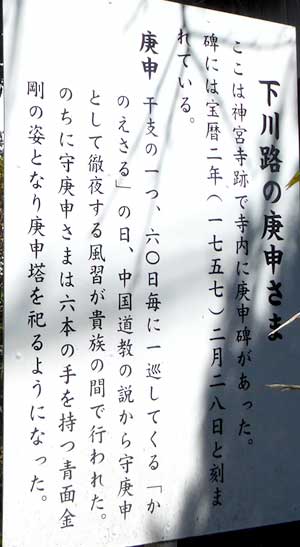 下川路の庚申さま
ここは神宮寺跡で寺内に庚申碑があった。
碑には宝暦二年(一七五七)二月二八日と刻ま
れている。
庚申 干支の一つ、六〇日毎に一巡してくる「か
のえさる」の日、中国道教の説から守庚申
として徹夜する風習が貴族の間で行われた。
のちに守庚申さまは六本の手を持つ青面金
剛の姿となり庚申塔を祀るようになった。